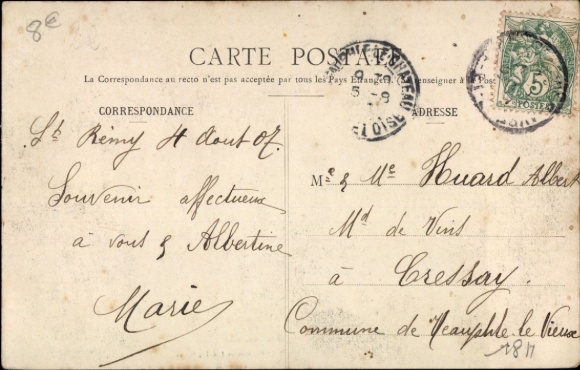 8€
CARTE POSTALE
La Correspondance au recto n'est pas acceptée par tous les Pays Etrangers. (Se renseigner à la Poste
CORRESPONDANCE
ADRESSE
St Rémy 4 Aout 07.
Souvenir affectueux
à vous & Albertine
Marie
Mr & Me Huard Albert
Md de Vins
à Cressay.
Commune de Neauphle le Vieux
5c
POSTES
9 30
5 -8
ET OISE